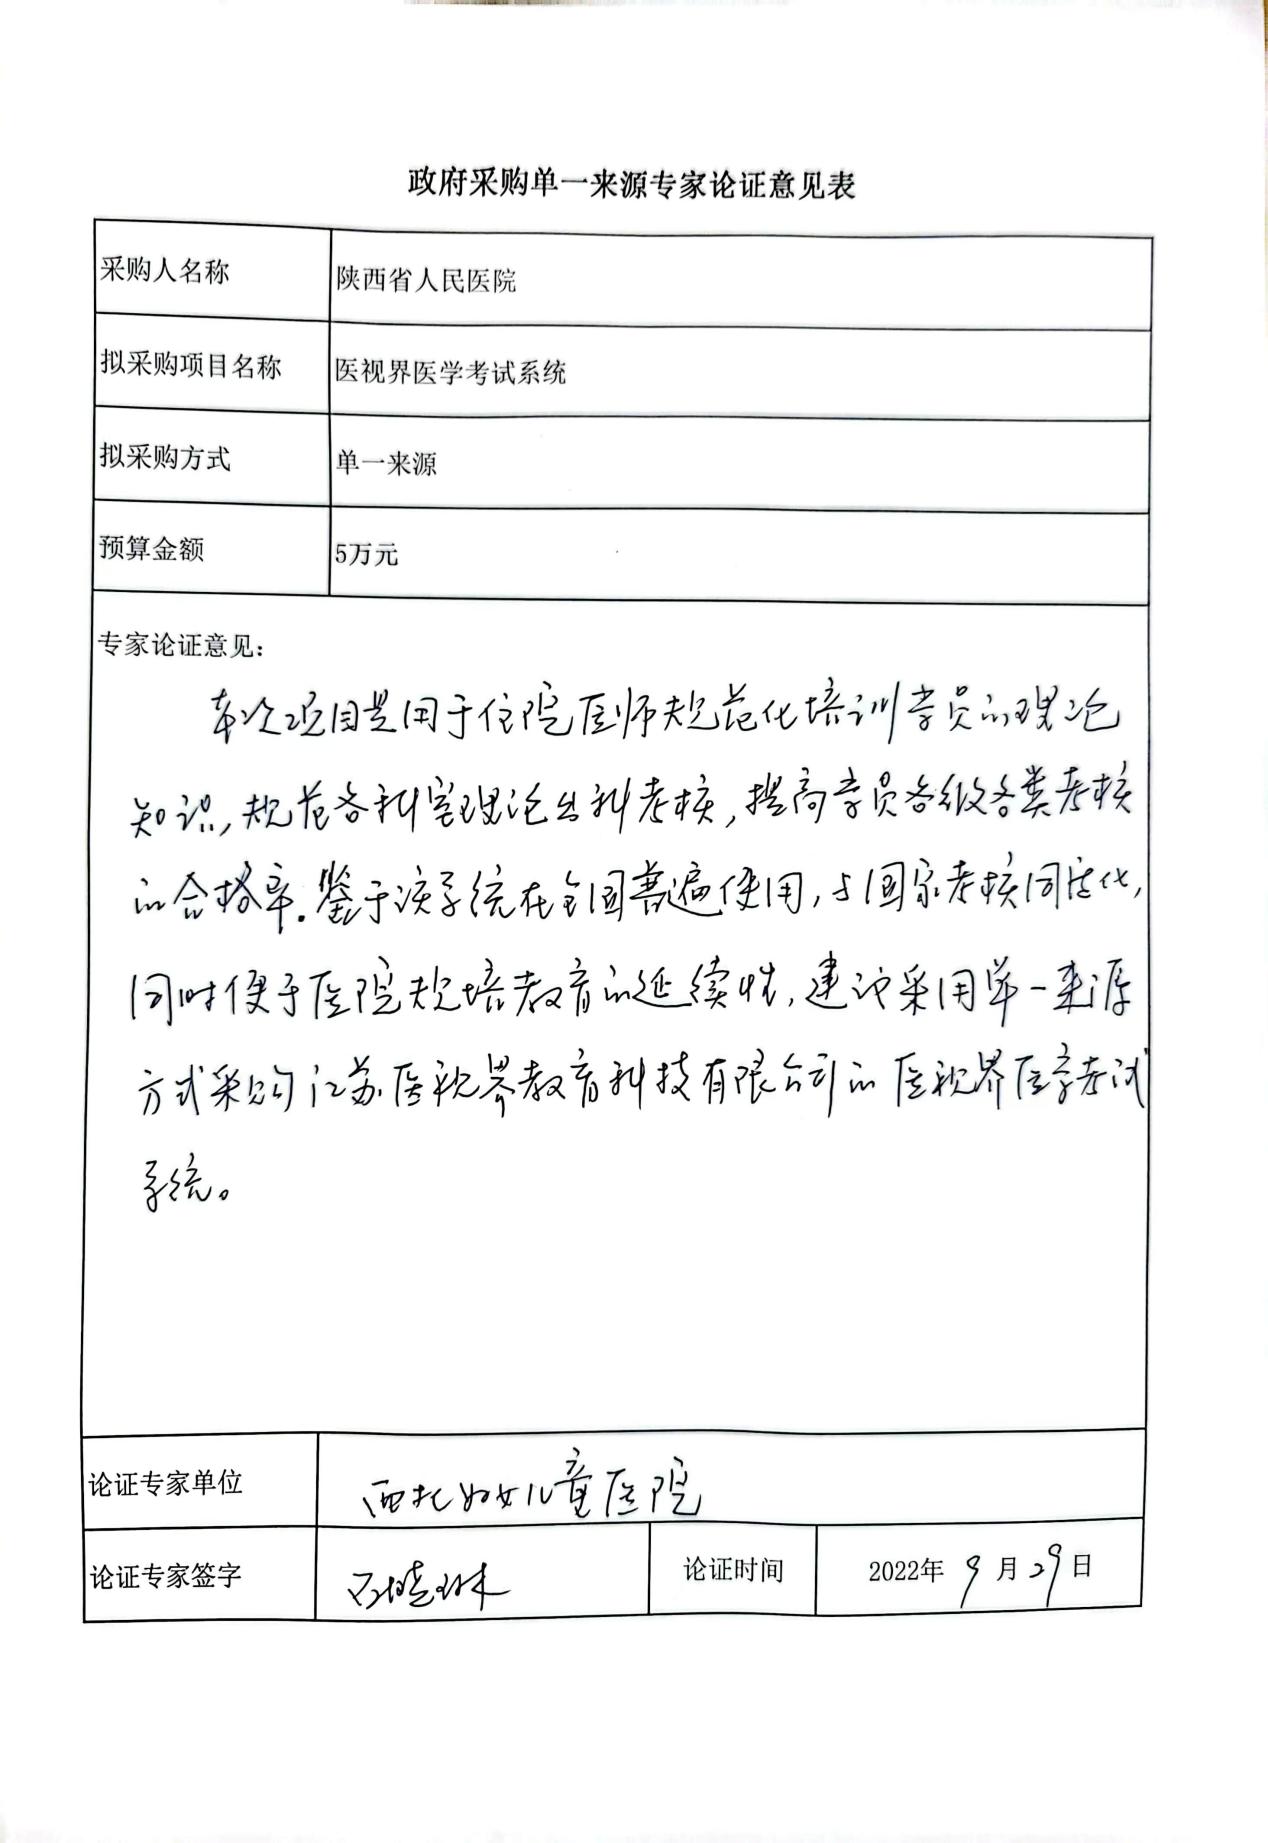 政府采购单一来源专家论证意见表
采购人名称
陕西省人民医院
拟采购项目名称
医视界医学考试系统
拟采购方式
单一来源
预算金额
5万元
专家论证意见：
本次项目是用于住院医师规范化培训学员的理论
知识，规范各科室理论出科考核，提高学员各级各类考核
的合格率。鉴于该系统在全国普遍使用，与国家考核同质化，
同时便于医院规培教育的延续性，建议采用单一来源
方式采购江苏医视界教育科技有限公司的医视界医学考试
系统。
论证专家单位
西北妇女儿童医院
论证专家签字
论证时间
2022年9月29日